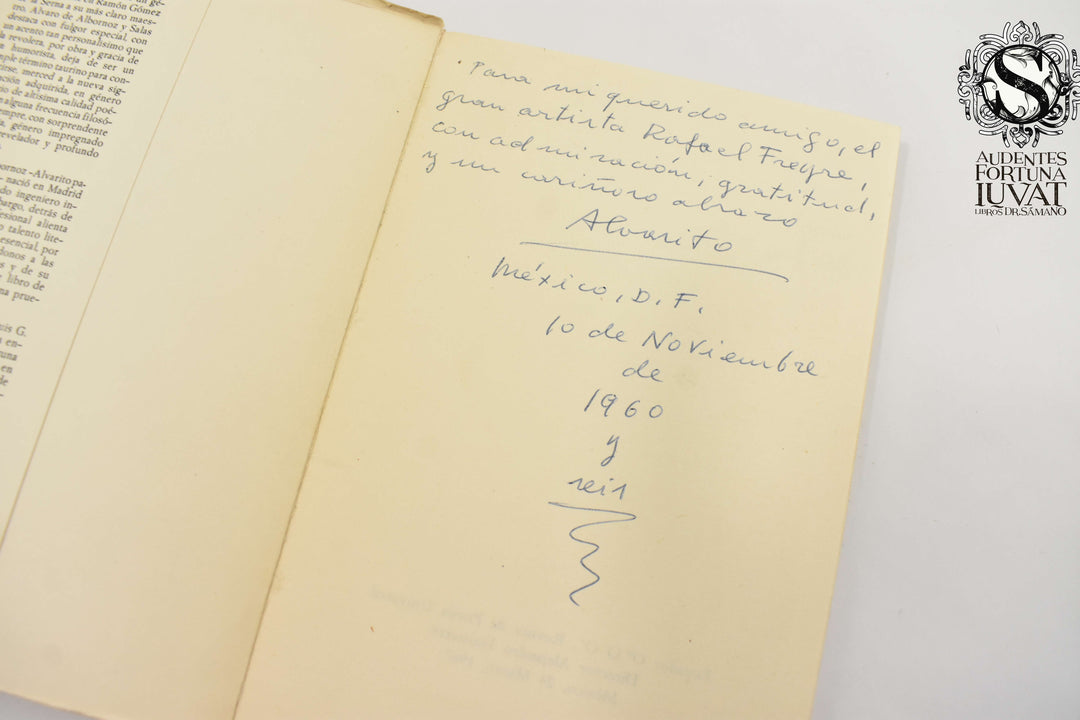 en Ramón Gómez
de la Serna a su más claro maes-
tro. Alvaro de Albornoz y Salas
destaca con fulgor especial, con
un acento tan personalísimo que
la revolera, por obra y gracia de
humorista, deja de ser un
mple término taurino para con-
irse, merced a la nueva sig-
ción adquirida, en género
io de altísima calidad poé-
n alguna frecuencia filosó-
mpre, con sorprendente
, género impregnado
revelador y profundo
ornoz -Alvarito pa-
- nació en Madrid
do ingeniero in-
bargo, detrás de
esional alienta
o talento lite-
esencial, por
donos a las
s y de su
libro de
na prue-
uis G.
en-
una
en
de
Para mi querido amigo, el
gran artista Rafael Freyre,
con admiración, gratitud,
y un cariñoso abrazo
Alvarito
México, D. F.
10 de Noviembre
de
1960
y
seis
S
AUDENTES
FORTUNA
IUVAT
LIBROS DR. SÁMANO